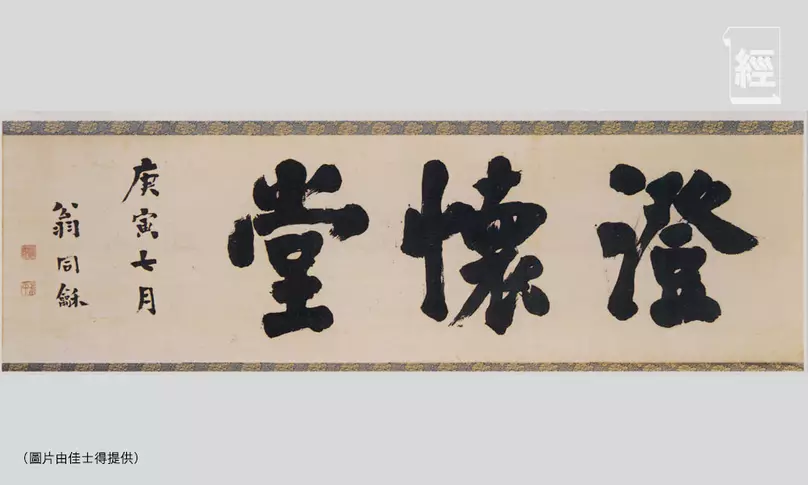 經
澄懷堂
庚寅七月
翁同龢
（圖片由佳士得提供）